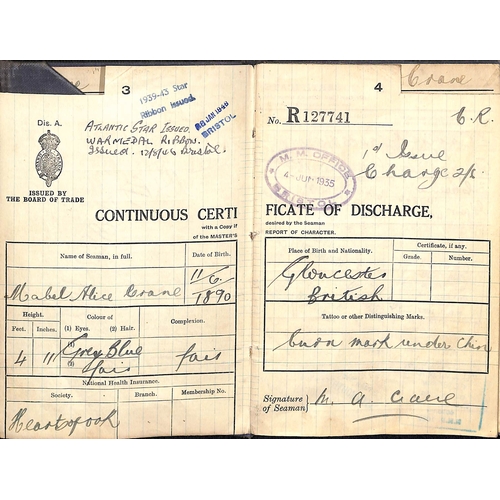 Crane
3
1939-43 Star
Ribbon issued
28 JAN 1946
BRISTOL
Dis. A.
ATLANTIC STAR ISSUED.
WARMEDAL RIBBON.
Issued. 12/8/46 Bristol.
ISSUED BY
THE BOARD OF TRADE
CONTINUOUS CERTI
with a Copy if
of the MASTER'S
Name of Seaman, in full.
Date of Birth.
Mabel Alice Crane
11/6/1890
Height.
Colour of
Complexion.
Feet.
Inches.
(1) Eyes.
(2) Hair.
4
11
(1) Grey Blue
(2) fair
fair
National Health Insurance.
Society.
Branch.
Membership No.
Hearts of oak
4
Crane
No. R 127741
C.R.
M. M. OFFICE
4-JUN 1935
BRISTOL
1st Issue
Charge 2/-
FICATE OF DISCHARGE,
desired by the Seaman
REPORT OF CHARACTER.
Place of Birth and Nationality.
Certificate, if any.
Grade.
Number.
Gloucester
British
Tattoo or other Distinguishing Marks.
burn mark under Chin
Signature
of Seaman
M. A. Crane